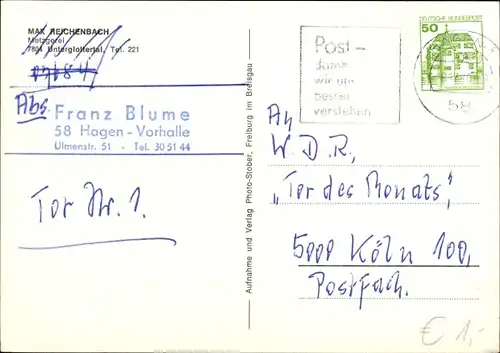 MAX REICHENBACH
Metzgerei
7804 Unterglottertal, Tel. 221
Abs.
Franz Blume
58 Hagen-Vorhalle
Ulmenstr. 51 · Tel. 30 51 44
Tor Nr. 1.
Aufnahme und Verlag Photo-Stober, Freiburg im Breisgau
Post -
damit
wir uns
besser
verstehen
DEUTSCHE BUNDESPOST
50
58
An
W.D.R.,
"Tor des Monats",
5000 Köln 100,
Postfach.
€ 1,-